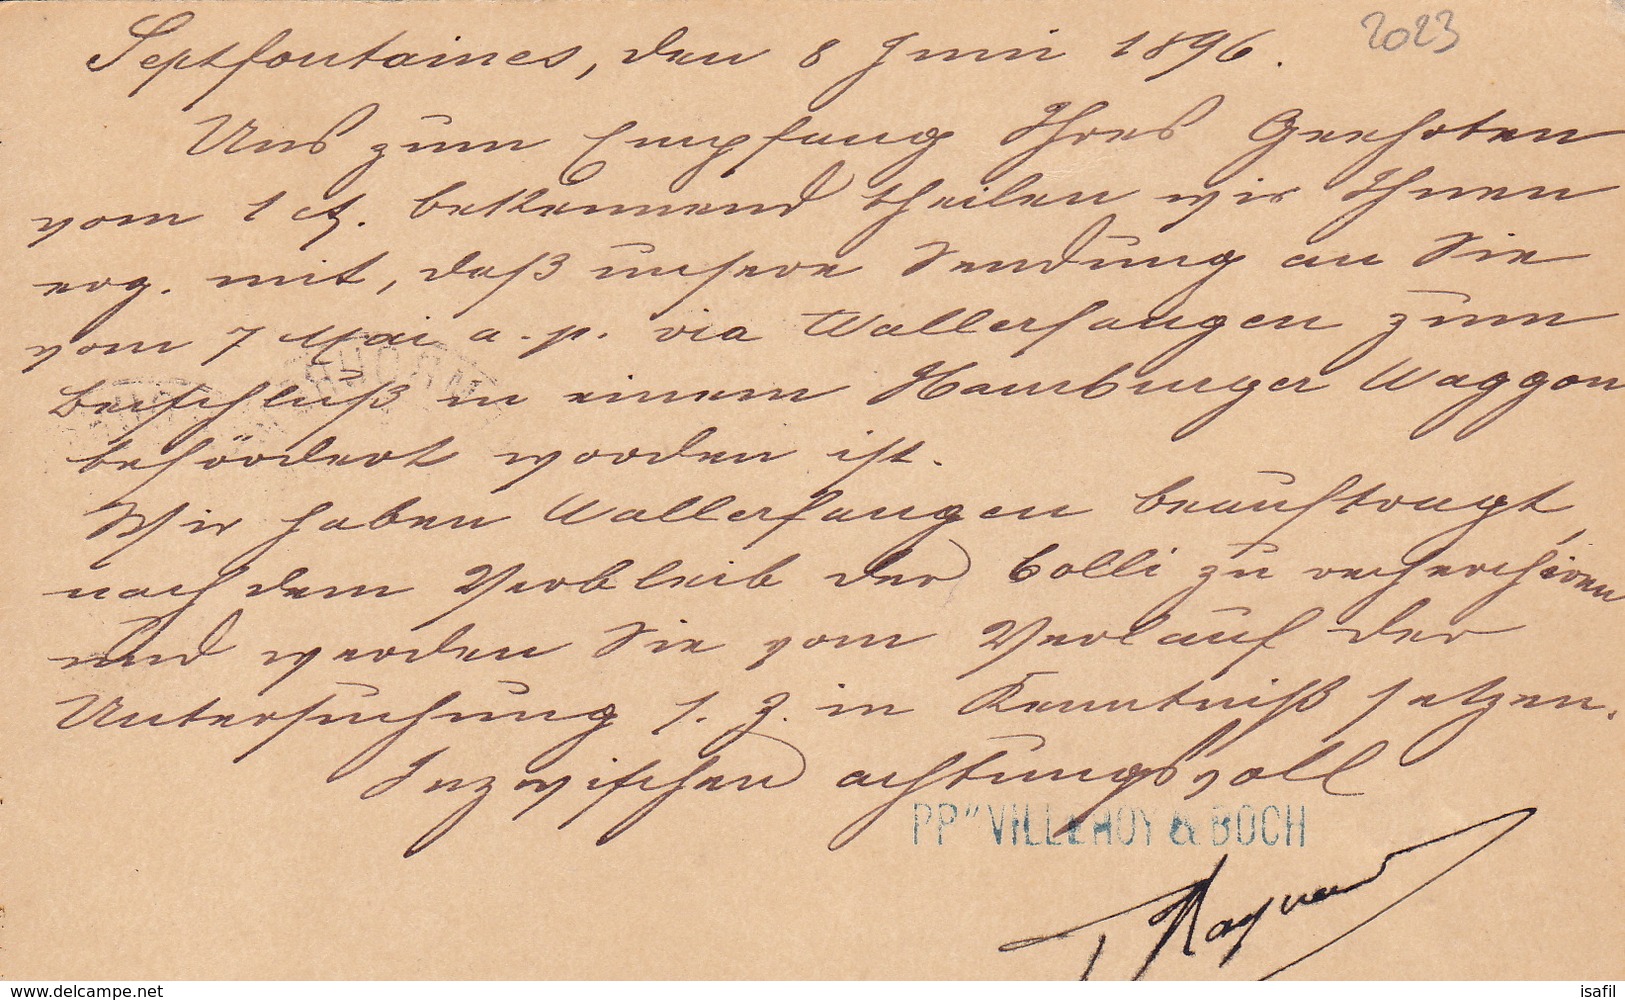 Septfontaines, den 8 Juni 1896.
2023
Uns zum Empfang Ihres Geehrten
vom 1 ct. bekennend theilen wir Ihnen
erg. mit, daß unsere Sendung an Sie
vom 7 Mai a. p. via Wallerfangen zum
Beischluß in einem Hamburger Waggon
befördert worden ist.
Wir haben Wallerfangen beauftragt,
nach dem Verbleib der Colli zu recherchiren
und werden Sie vom Verlauf der
Untersuchung s. Z. in Kenntniß setzen.
Inzwischen achtungsvoll
PPª VILLEROY & BOCH
www.delcampe.net
isafil